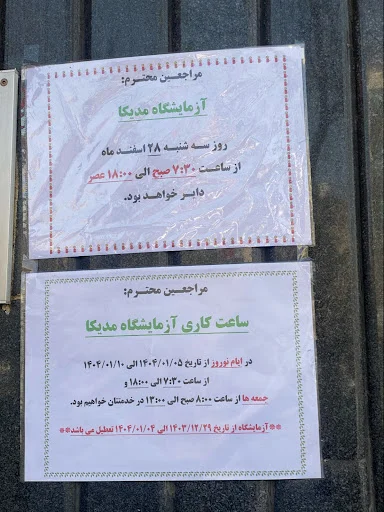 مراجعین محترم:
آزمایشگاه مدیکا
روز سه شنبه ۲۸ اسفند ماه
از ساعت ۷:۳۰ صبح الی ۱۸:۰۰ عصر
دایر خواهد بود.
مراجعین محترم:
ساعت کاری آزمایشگاه مدیکا
در ایام نوروز از تاریخ ۱۴۰۴/۰۱/۰۵ الی ۱۴۰۴/۰۱/۱۰
از ساعت ۷:۳۰ الی ۱۸:۰۰ و
جمعه ها از ساعت ۸:۰۰ صبح الی ۱۳:۰۰ در خدمتتان خواهیم بود.
**آزمایشگاه از تاریخ ۱۴۰۳/۱۲/۲۹ الی ۱۴۰۴/۰۱/۰۴ تعطیل می باشد**